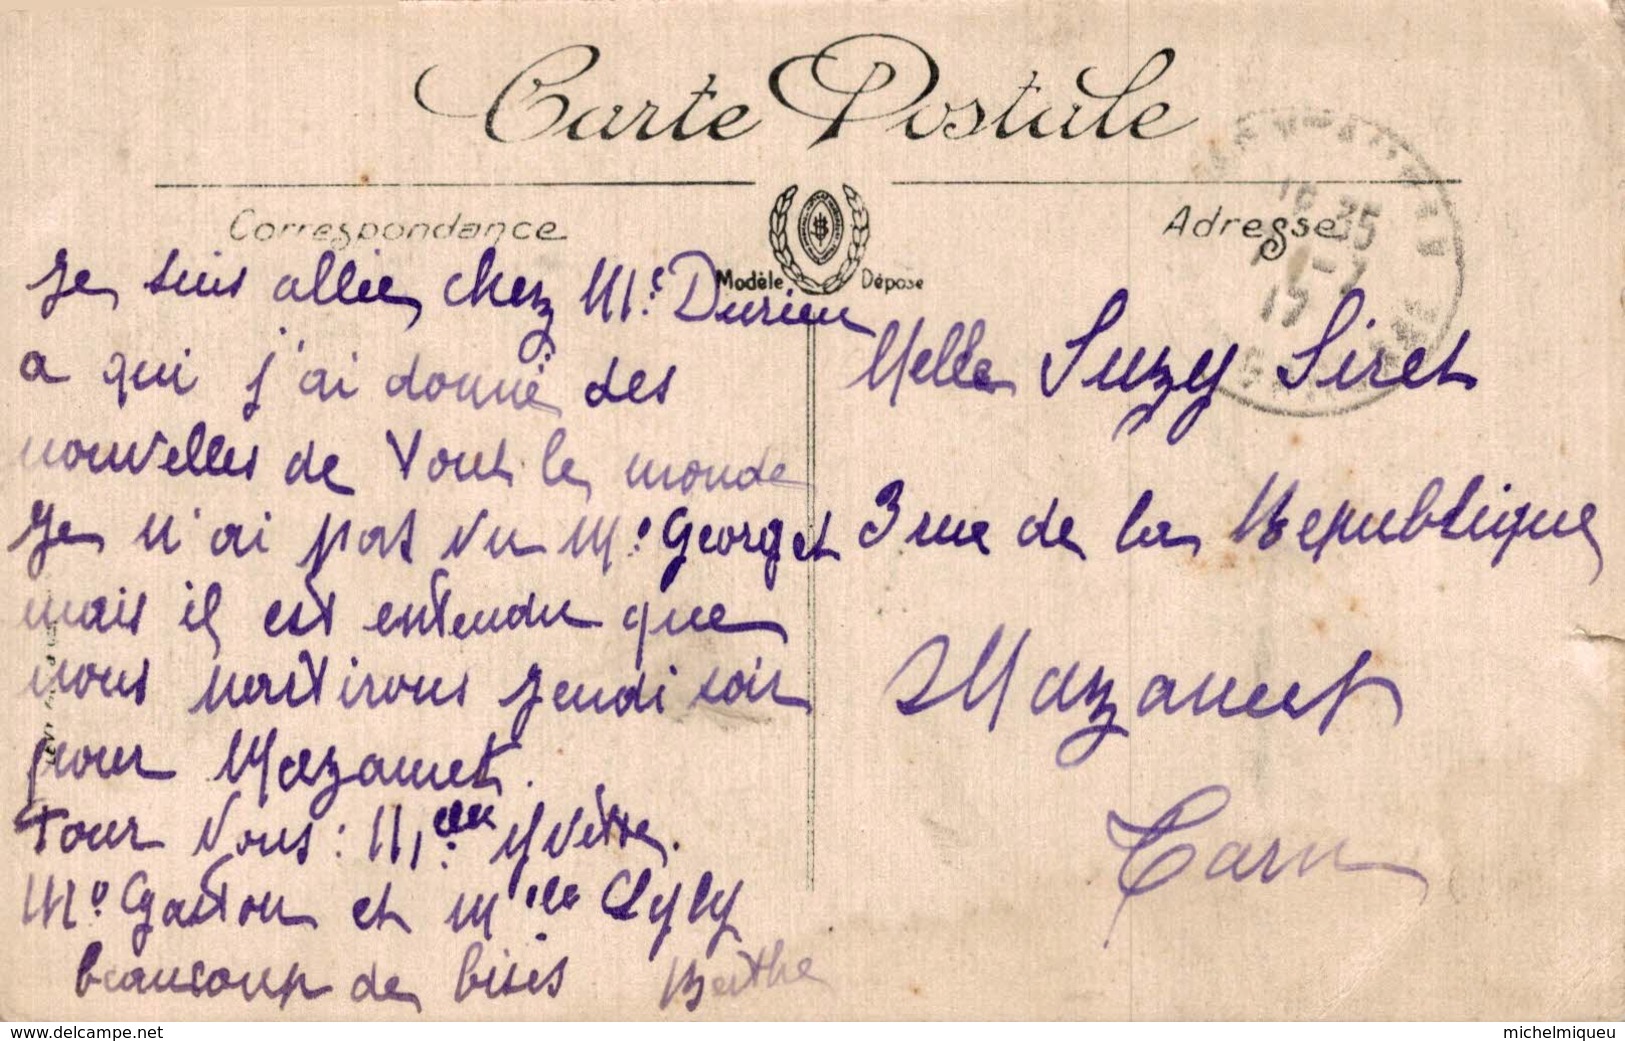 Carte Postale
Correspondance
Adresse
Modèle Déposé
Je suis allée chez Mr. Durieu
a qui j'ai donné des
nouvelles de tout le monde
Je n'ai pas vu Mr. Georget
mais il est entendu que
nous partirons jeudi soir
pour Mazamet.
Pour vous: Mme Yvette.
Mr Gaston et Mlle Clyly
beaucoup de bises Berthe
Melle Suzy Siret
3 rue de la Republique
Mazamet
Tarn
16 35
15
www.delcampe.net
michelmiqueu